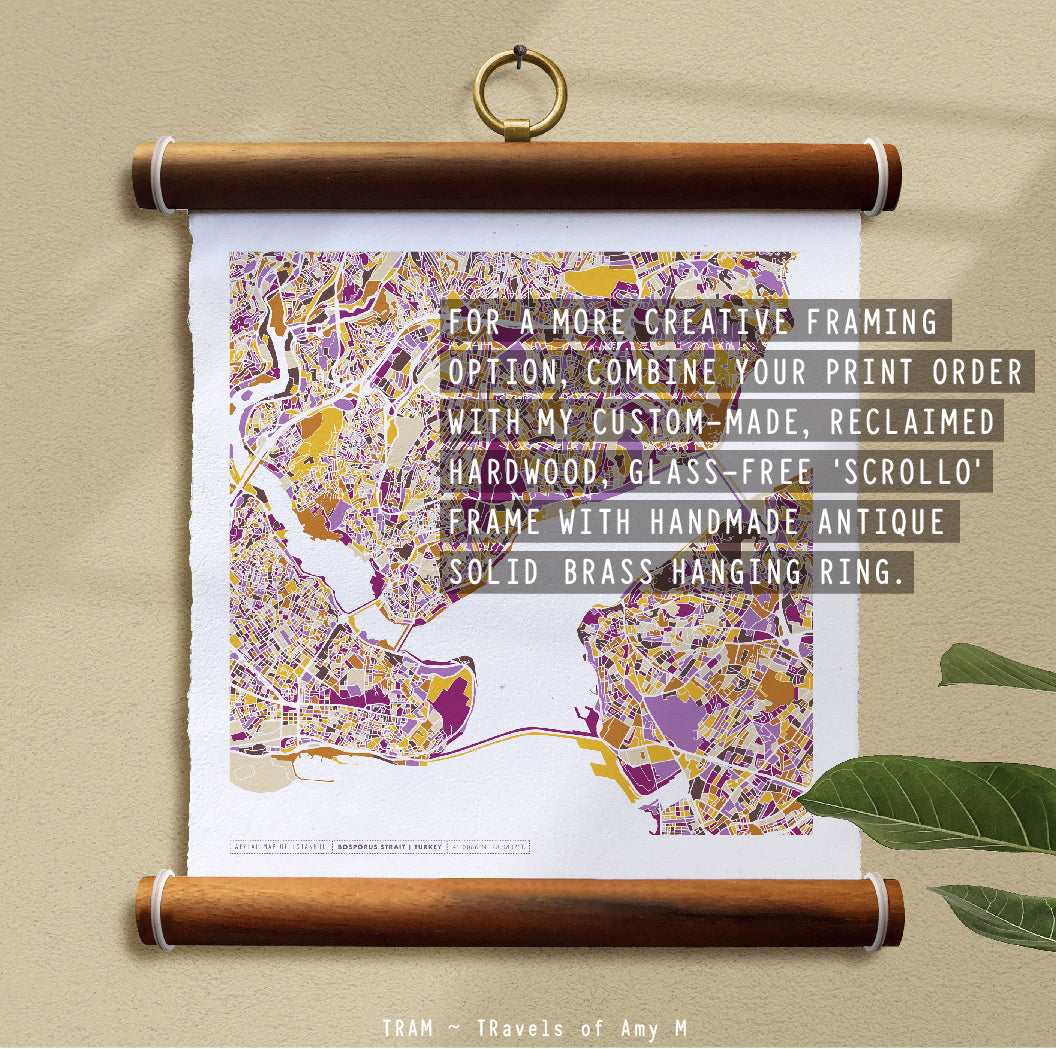 FOR A MORE CREATIVE FRAMING
OPTION, COMBINE YOUR PRINT ORDER
WITH MY CUSTOM-MADE, RECLAIMED
HARDWOOD, GLASS-FREE 'SCROLLO'
FRAME WITH HANDMADE ANTIQUE
SOLID BRASS HANGING RING.
AERIAL MAP OF ISTANBUL BOSPORUS STRAIT | TURKEY
TRAM ~ TRavels of Amy M